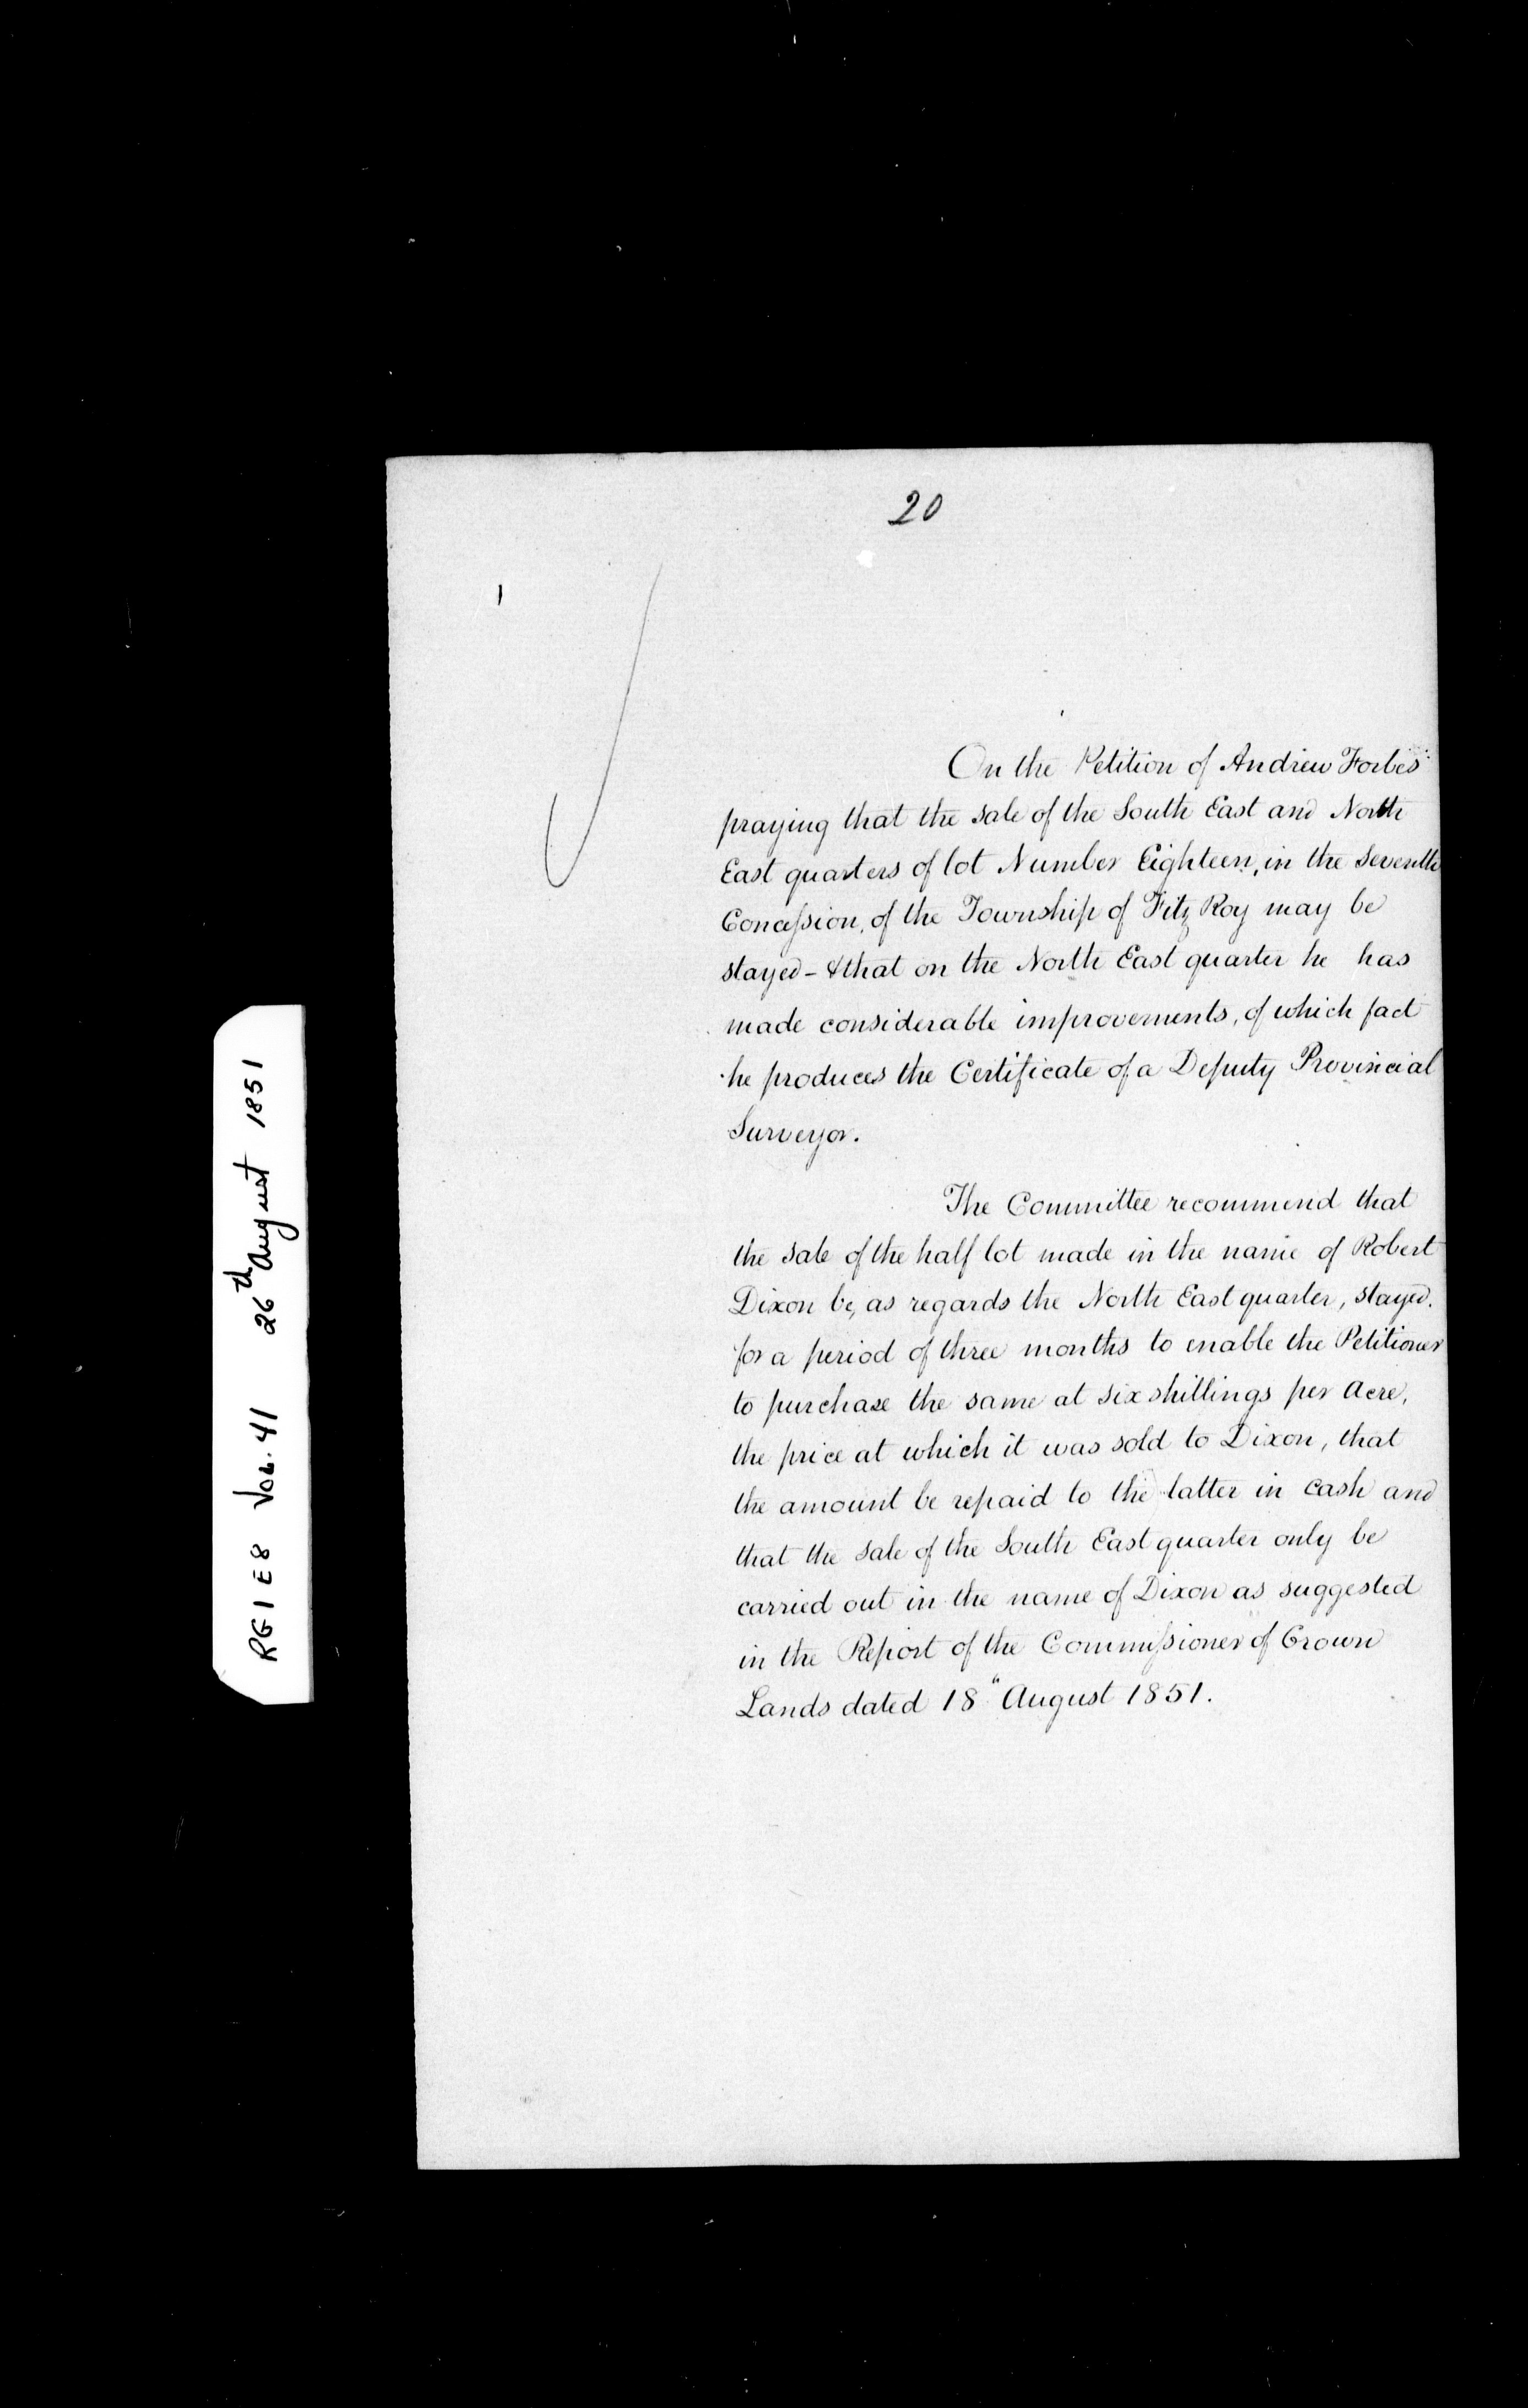 20
On the Petition of Andrew Forbes
praying that the sale of the South East and North
East quarters of lot Number Eighteen, in the Seventh
Concession, of the Township of Fitz Roy may be
stayed - & that on the North East quarter he has
made considerable improvements, of which fact
he produces the Certificate of a Deputy Provincial
Surveyor.
The Committee recommend that
the sale of the half lot made in the name of Robert
Dixon be, as regards the North East quarter, stayed.
for a period of three months to enable the Petitioner
to purchase the same at six shillings per Acre,
the price at which it was sold to Dixon, that
the amount be repaid to the latter in cash and
that the sale of the South East quarter only be
carried out in the name of Dixon as suggested
in the Report of the Commissioner of Crown
Lands dated 18" August 1851.
RG 1 E 8 VOL. 41 26th August 1851